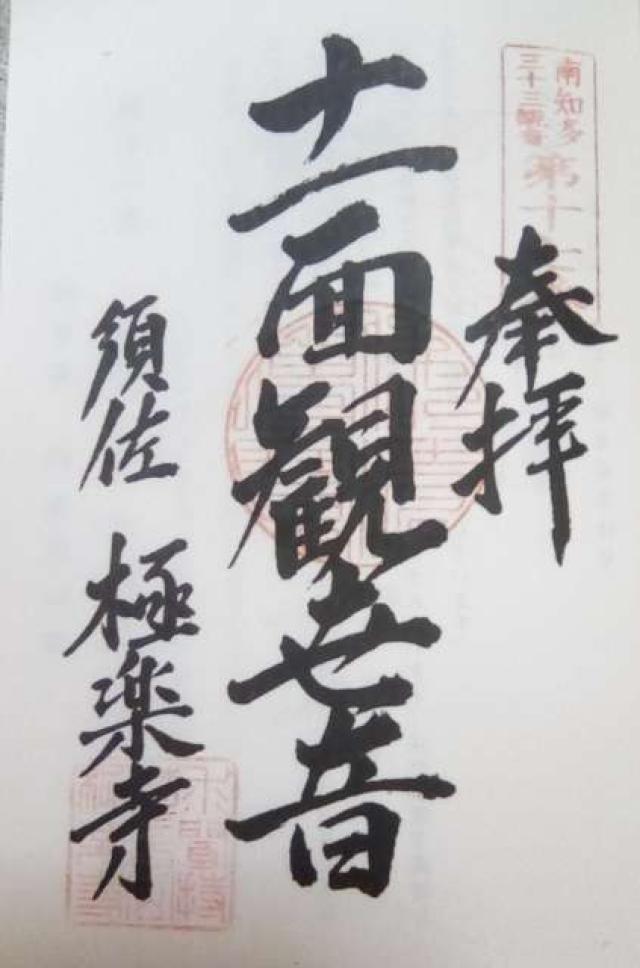 南知多
三十三観音
第十
奉拝
十一面観世音
須佐 極楽寺